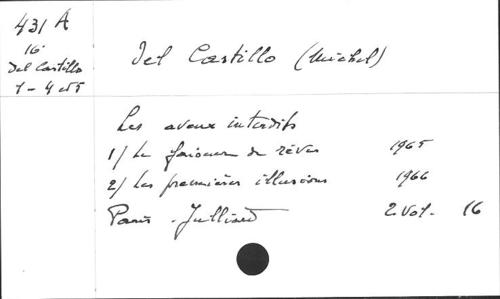 431 A
16
Del Castillo
1 - 4 et 5
Del Castillo (Michel)
Les aveux interdits
1/ Le faiseur de rêves 1965
2/ Les premières illusions 1966
Paris - Julliard 2 vol. 16